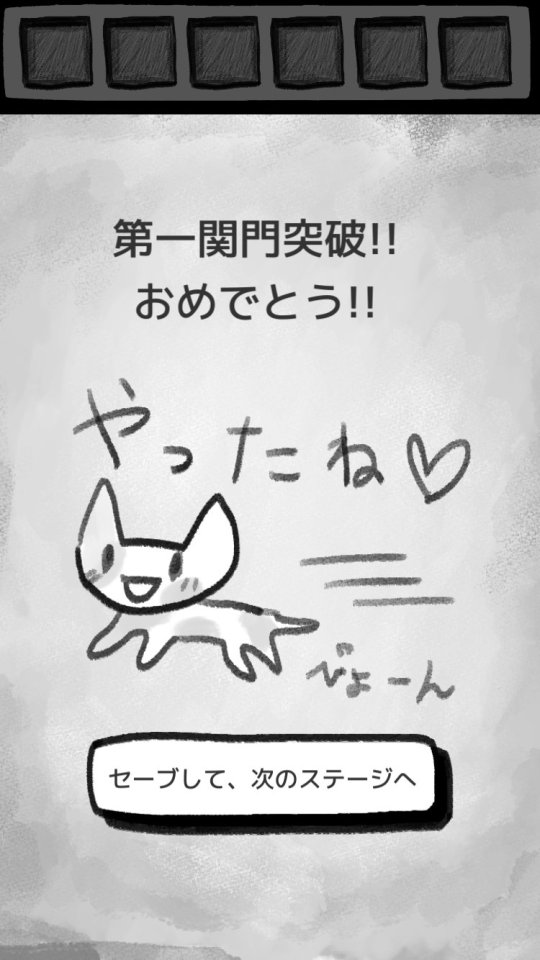 第一関門突破!!
おめでとう!!
やったね♡
びょーん
セーブして、次のステージへ